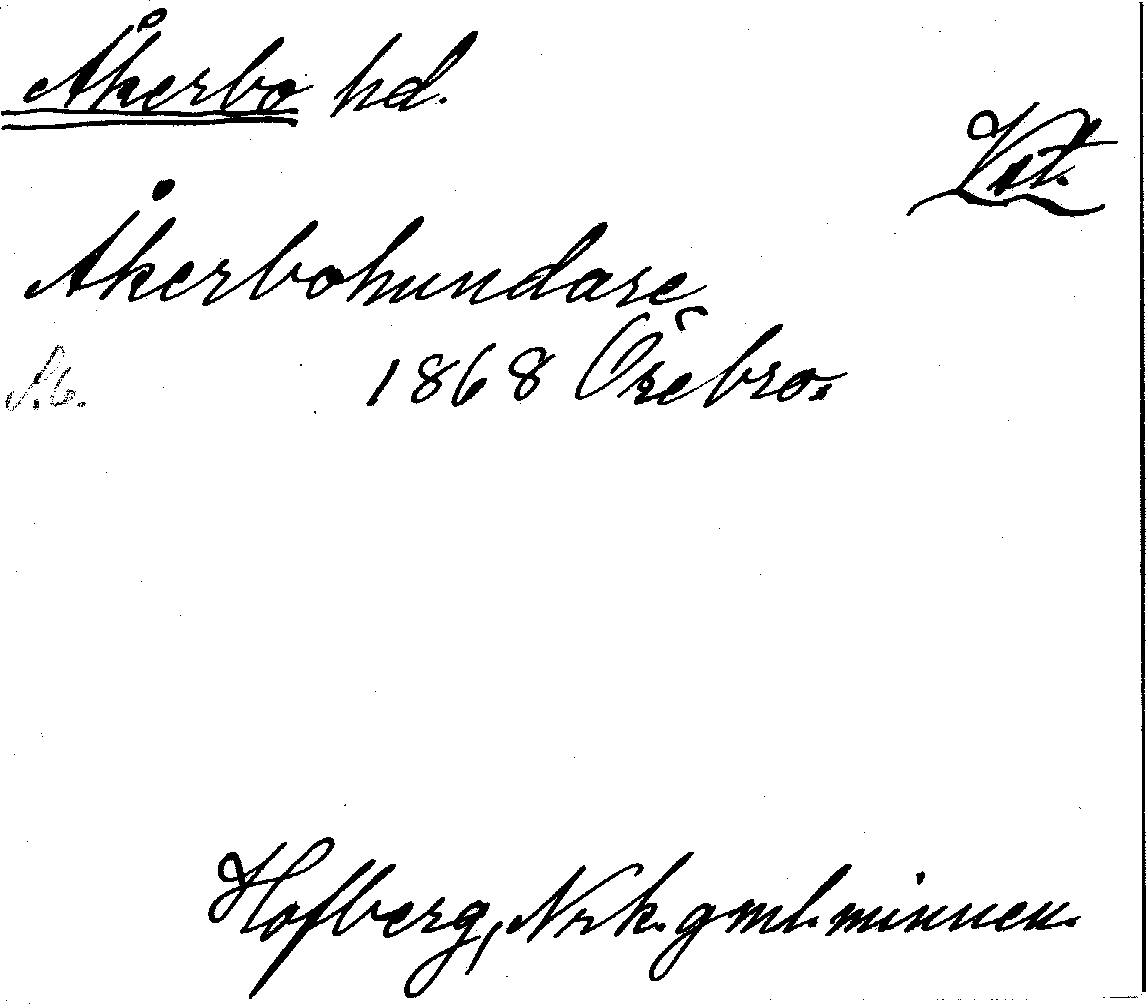 Åkerbo hd.
Vstl.
Åkerbohundare
1868 Örebro.
Hofberg, Nrk. gml. minnen.